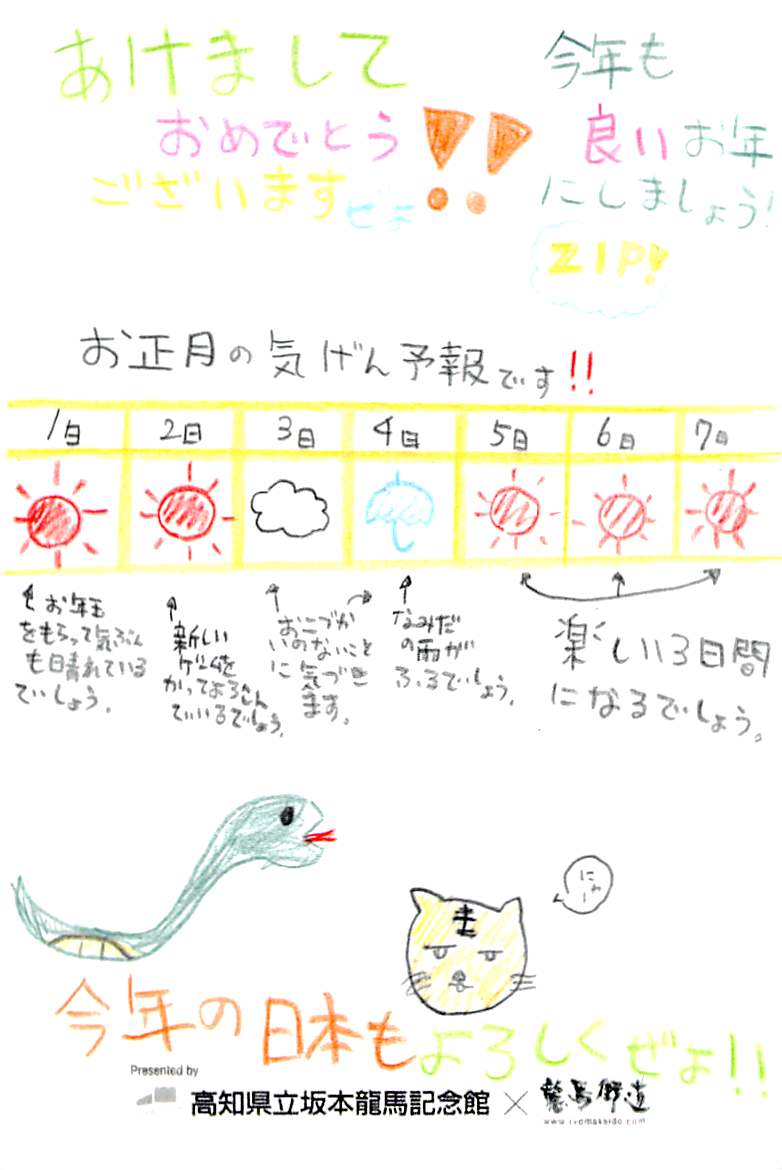 あけまして
おめでとう!!
ございます ぜよ
今年も
良いお年
にしましょう!
ZIP!
お正月の気げん予報です!!
1日 2日 3日 4日 5日 6日 7日
お年玉
をもらって気ぶん
も日晴れている
でしょう。
新しい
ゲームを
かってよろこん
でいるでしょう。
おこづか
いのないこと
に気づき
ます。
なみだ
の雨が
ふるでしょう。
楽しい3日間
になるでしょう。
にゃー
今年の日本もよろしくぜよ!!
Presented by
高知県立坂本龍馬記念館×龍馬街道
www.ryomakaido.com